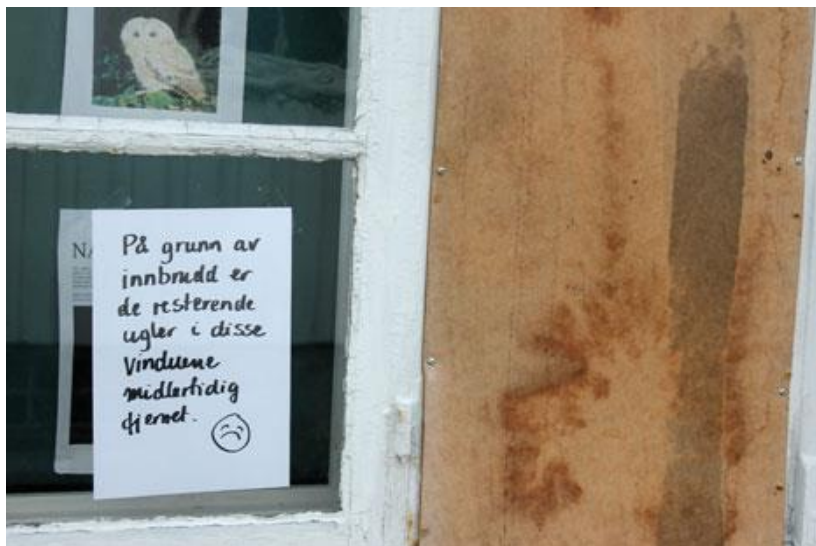 NA
På grunn av
innbrudd er
de resterende
ugler i disse
vinduene
midlertidig
fjernet.